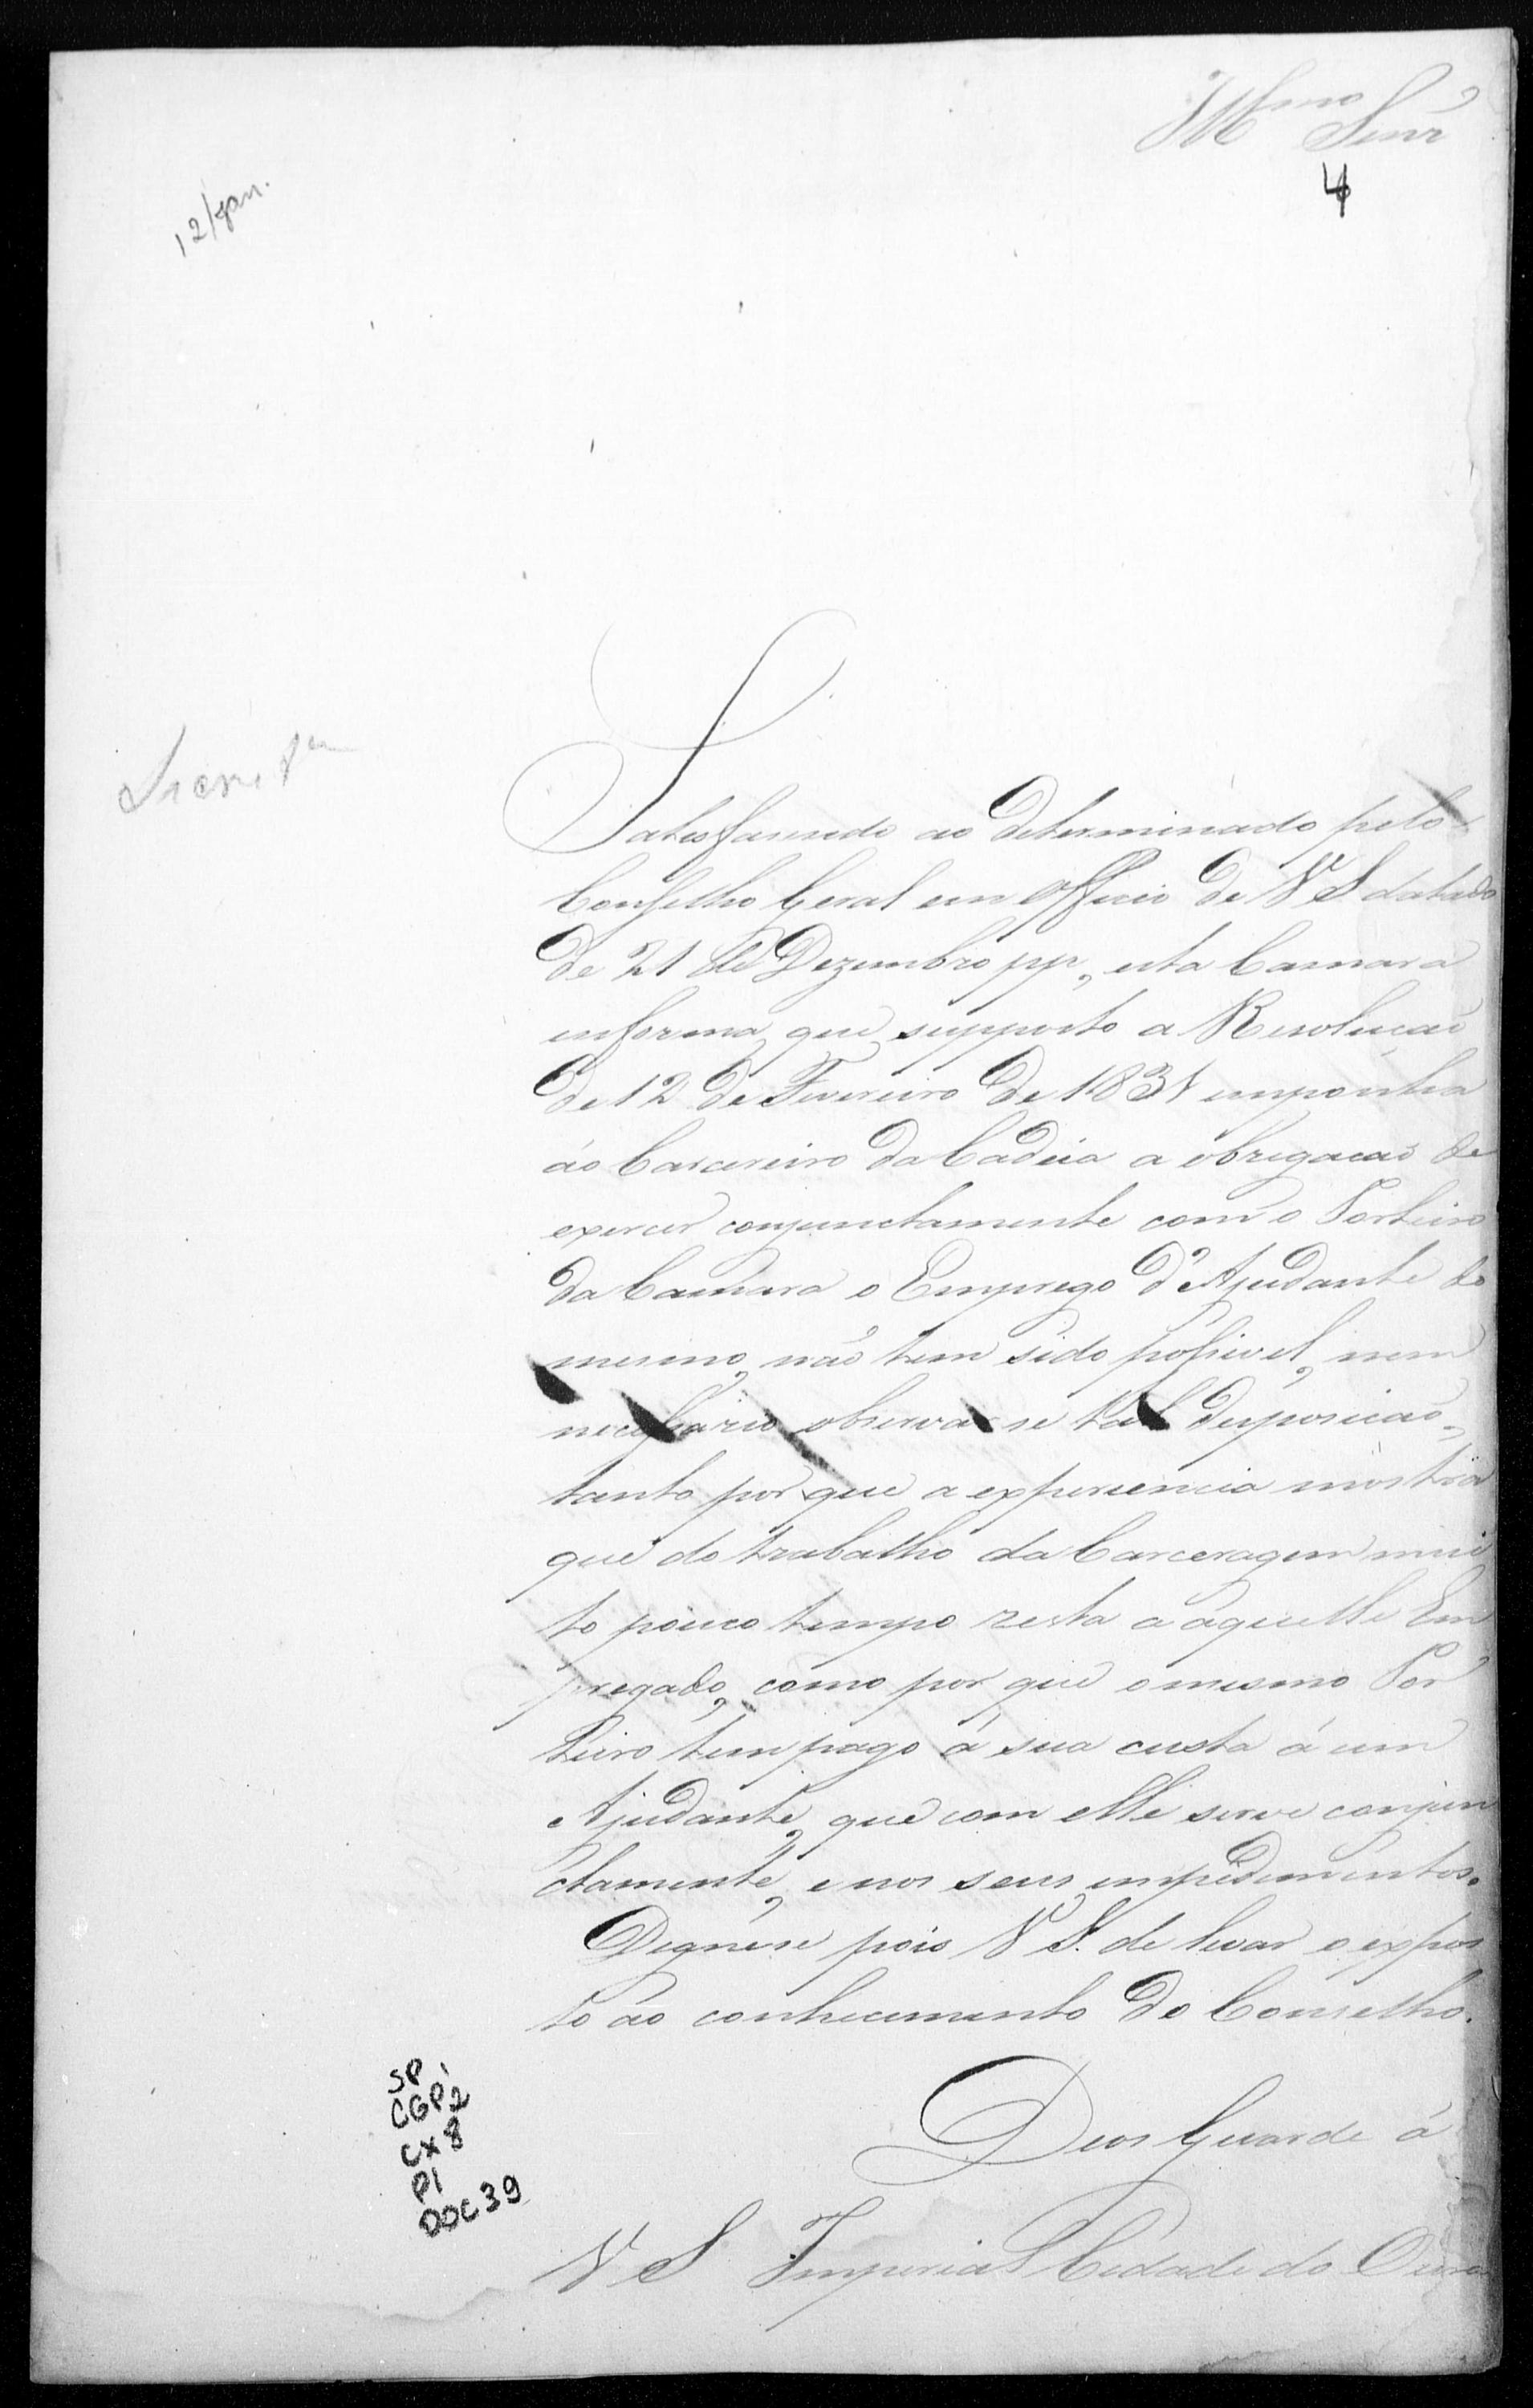 Illmo Senr
4
12/jan.
Satisfasendo ao determinado pelo
Conselho Geral em Officio de V S datado
de 21 de Dezembro pp, esta Camara
informa, que supposto a Resolucaõ
de 12 de Fevereiro de 1831 imponha
áo Carcereiro da Cadeia a obrigacaõ de
exercer conjunctamente com o Porteiro
da Camara o Emprego d'Ajudante do
mesmo, naõ tem sido possivel, nem
necessario observar se tal disposicaõ,
tanto por que a experiencia mostra
que do trabalho da Carceragem mui
to pouco tempo resta a aquelle Em
pregado, como por que o mesmo Por
teiro tem pago á sua custa á um
Ajudante, que com elle serve conjun
ctamente, e nos seus impedimentos.
Digne se pois V S. de levar o expos
to ao conhecimento do Conselho.
Deos Guarde á
V S Imperial Cidade do Ouro
SP
CGP2
CX8
P1
DOC39